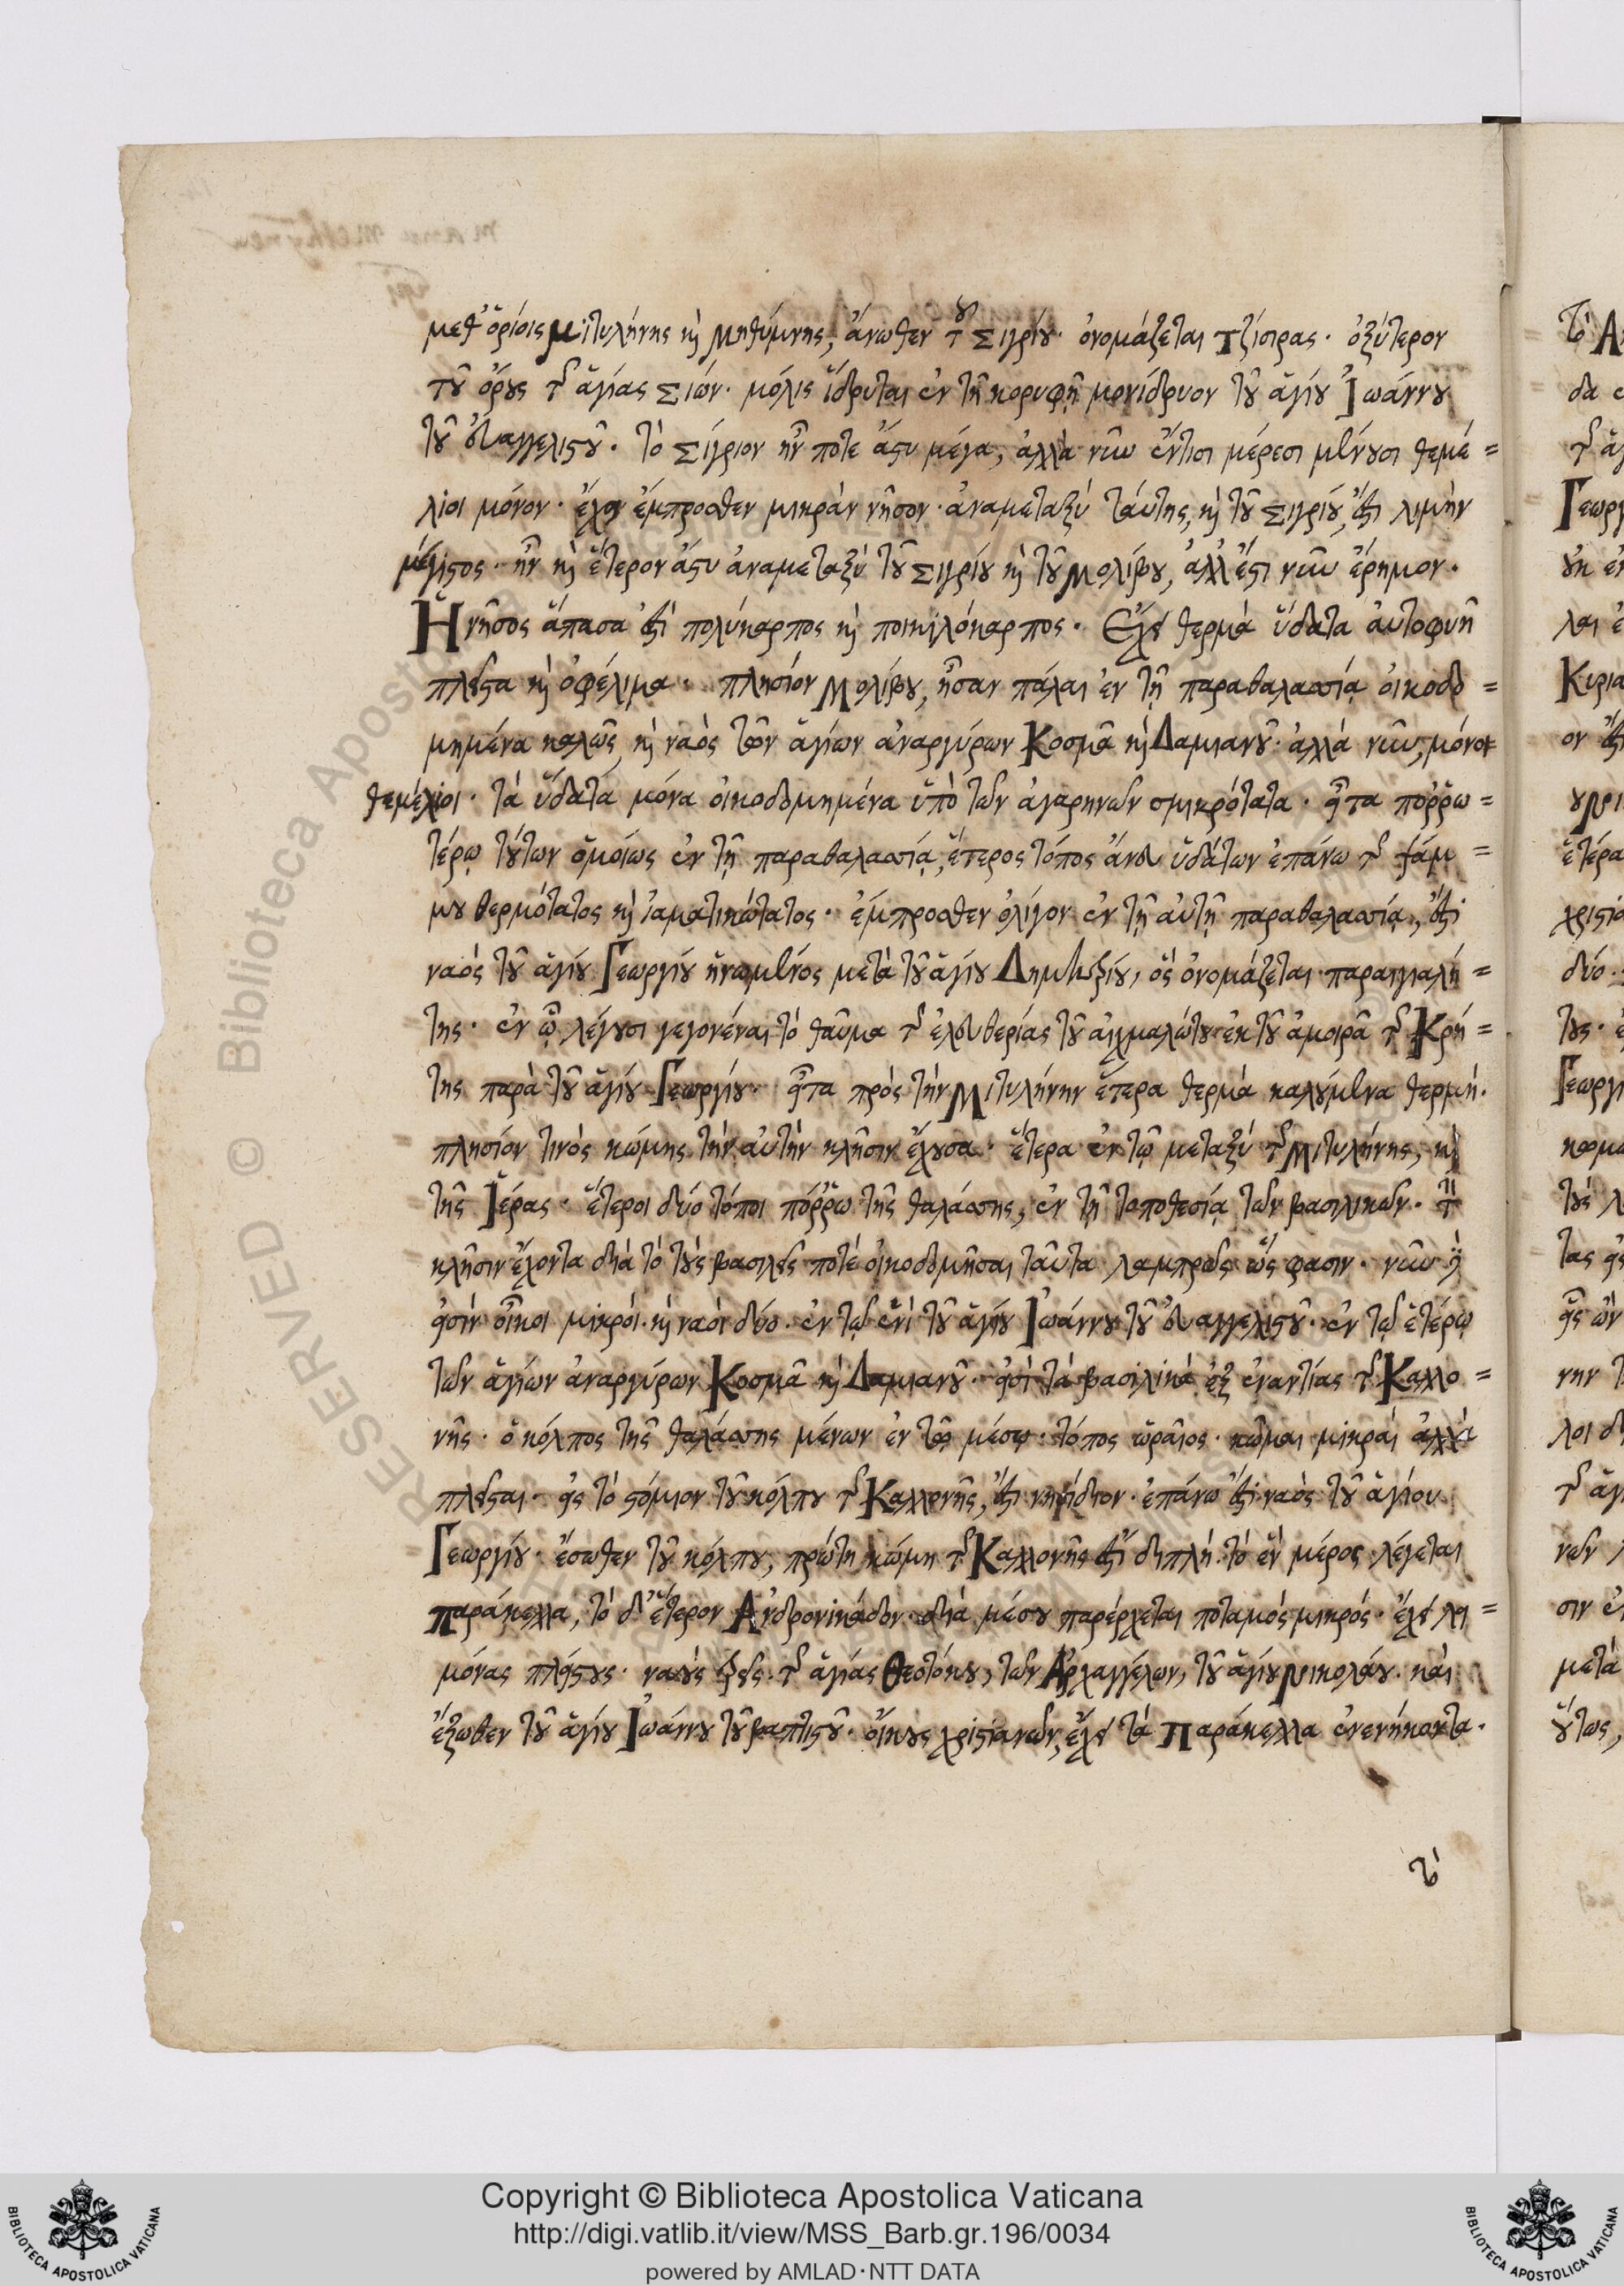 μεθ' ὁρίοις Μιτυλήνης καὶ Μηθύμνης, ἄνωθεν τοῦ Σιγρίου· ὀνομάζεται Τζίσιρας· ὀξύτερον
τοῦ ὄρους τῆς ἁγίας Σιών· μόλις ἵδρυται ἐν τῇ κορυφῇ μονίδρυον τοῦ ἁγίου Ἰωάννου
τοῦ εὐαγγελιστοῦ· τὸ Σίγριον ἦν ποτε ἄστυ μέγα, ἀλλὰ νῦν ἔν τισι μέρεσι μένουσι θεμέ=
λιοι μόνον· ἔχον ἔμπροσθεν μικρὰν νῆσον· ἀναμεταξύ ταύτης, καὶ τοῦ Σιγρίου, ἐστι λιμὴν
μέγιστος· ἦν καὶ ἕτερον ἄστυ ἀναμεταξὺ τοῦ Σιγρίου καὶ τοῦ Μολίβου, ἀλλ' ἔστι νῦν ἔρημον.
Ἡ νῆσος ἅπασα ἐστὶ πολύκαρπος καὶ ποικιλόκαρπος. Ἔχει θερμὰ ὕδατα αὐτοφυῆ
πλεῖστα καὶ ὀφέλιμα· πλησίον Μολίβου, ἦσαν πάλαι ἐν τῇ παραθαλασσίᾳ οἰκοδο=
μημένα καλῶς, καὶ ναὸς τῶν ἁγίων ἀναργύρων Κοσμᾶ καὶ Δαμιανοῦ· ἀλλὰ νῦν, μόνοι
θεμέλιοι· τὰ ὕδατα μόνα οἰκοδομημένα ὑπὸ τῶν ἀγαρηνῶν σμικρότατα· εἶτα ποῤῥω=
τέρῳ τούτων ὁμοίως ἐν τῇ παραθαλασσίᾳ, ἕτερος τόπος ἄνευ ὑδάτων ἐπάνω τῆς ψάμ=
μου θερμότατος καὶ ἰαματικώτατος· ἔμπροσθεν ὀλίγον ἐν τῇ αὐτῇ παραθαλασσίᾳ, ἐστὶ
ναός τοῦ ἁγίου Γεωργίου ἡνωμένος μετὰ τοῦ ἁγίου Δημητρίου, ὃς ὀνομάζεται παραιγιαλί=
της· ἐν ᾧ λέγουσι γεγονέναι τὸ θαῦμα τῆς ἐλευθερίας τοῦ αἰχμαλώτου ἐκ τοῦ ἀμοιρᾶ τῆς Κρή=
της παρὰ τοῦ ἁγίου Γεωργίου· εἶτα πρὸς τὴν Μιτυλήνην ἕτερα θερμὰ καλούμενα θερμή.
πλησίον τινὸς κώμης τὴν αὐτὴν κλῆσιν ἔχουσα· ἕτερα ἐν τῷ μεταξύ τῆς Μιτυλήνης, καὶ
τῆς Ἱέρας· ἕτεροι δύο τόποι πόῤῥω τῆς θαλάσσης, ἐν τῇ τοποθεσίᾳ τῶν βασιλικῶν· τὴν
κλῆσιν ἔχοντα διὰ τὸ τοὺς βασιλεῖς ποτὲ οἰκοδομῆσαι ταῦτα λαμπρῶς ὥς φασιν· νῦν
εἰσὶν οἶκοι μικροί· καὶ ναοὶ δύο· ἐν τῷ ἑνὶ τοῦ ἁγίου Ἰωάννου τοῦ εὐαγγελιστοῦ· ἐν τῷ ἑτέρῳ
τῶν ἁγίων ἀναργύρων Κοσμᾶ καὶ Δαμιανοῦ· εἰσὶ τὰ βασιλικὰ ἐξ ἐναντίας τῆς Καλλο=
νῆς· ὁ κόλπος τῆς θαλάσσης μένων ἐν τῷ μέσῳ· τόπος ὡραῖος· κῶμαι μικραί ἀλλὰ
πλεῖσται· εἰς τὸ στόμιον τοῦ κόλπου τῆς Καλλονῆς, ἐστι νησίδιον· ἐπάνω ἐστι ναὸς τοῦ ἁγίου
Γεωργίου· ἔσωθεν τοῦ κόλπου, πρώτη κώμη τῆς Καλλονῆς ἐστὶ διπλή· τὸ ἓν μέρος λέγεται
Παράκελλα, τὸ δ' ἕτερον Ἀνδρονικάδον· διὰ μέσου παρέρχεται ποταμὸς μικρός· ἔχει λι=
μόνας πλείστους· ναοὺς τρεῖς· τῆς ἁγίας Θεοτόκου, τῶν Ἀρχαγγέλων, τοῦ ἁγίου Νικολάου· καὶ
ἔξωθεν τοῦ ἁγίου Ἰωάννου τοῦ βαπτιστοῦ· οἴκους χριστιανῶν, ἔχει τὰ Παράκελλα ἐνενήκοντα.
τὸ
Copyright © Biblioteca Apostolica Vaticana
http://digi.vatlib.it/view/MSS_Barb.gr.196/0034
powered by AMLAD·NTT DATA